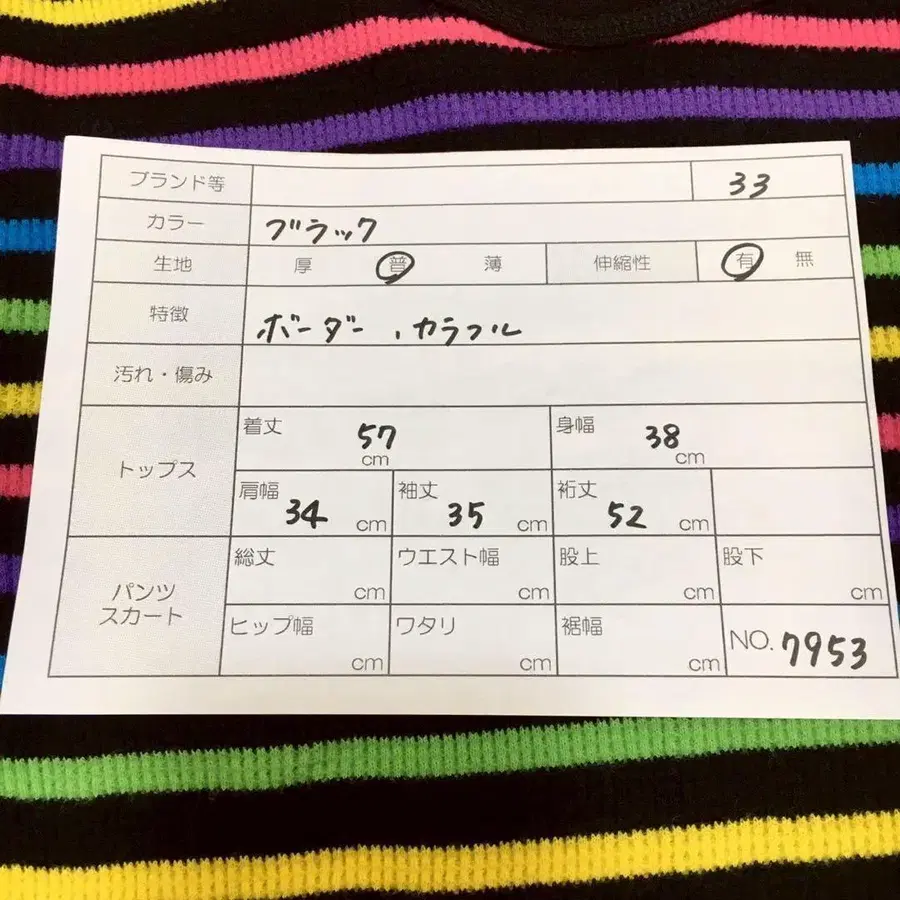 ブランド等 33
カラー ブラック
生地 厚 普 薄 伸縮性 有 無
特徴 ボーダー、カラフル
汚れ・傷み
トップス
着丈 57 cm 身幅 38 cm
肩幅 34 cm 袖丈 35 cm 裄丈 52 cm
パンツ
スカート
総丈 cm ウエスト幅 cm 股上 cm 股下 cm
ヒップ幅 cm ワタリ cm 裾幅 cm NO. 7953